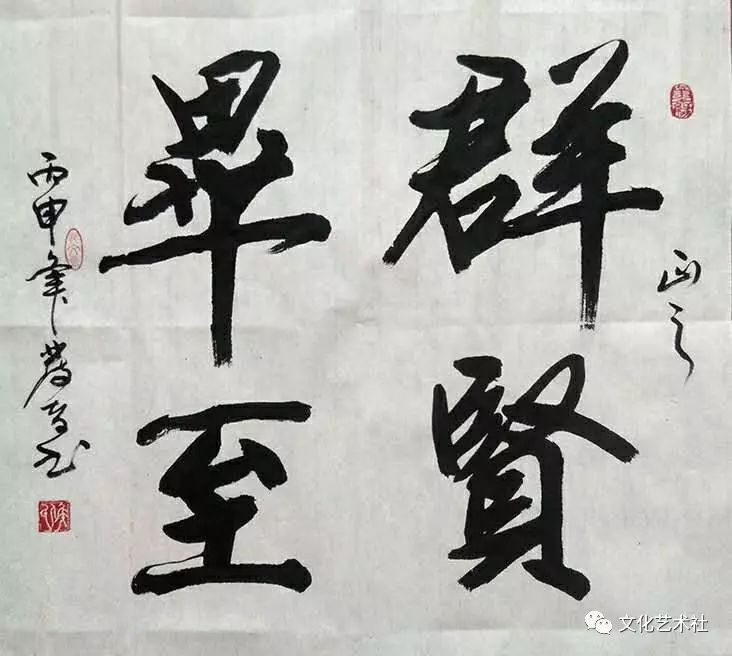 正之
群賢
畢至
丙申年书
文化艺术社